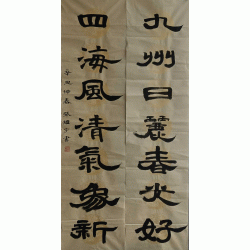 九州日麗春光好
四海風清氣象新
辛丑仲春